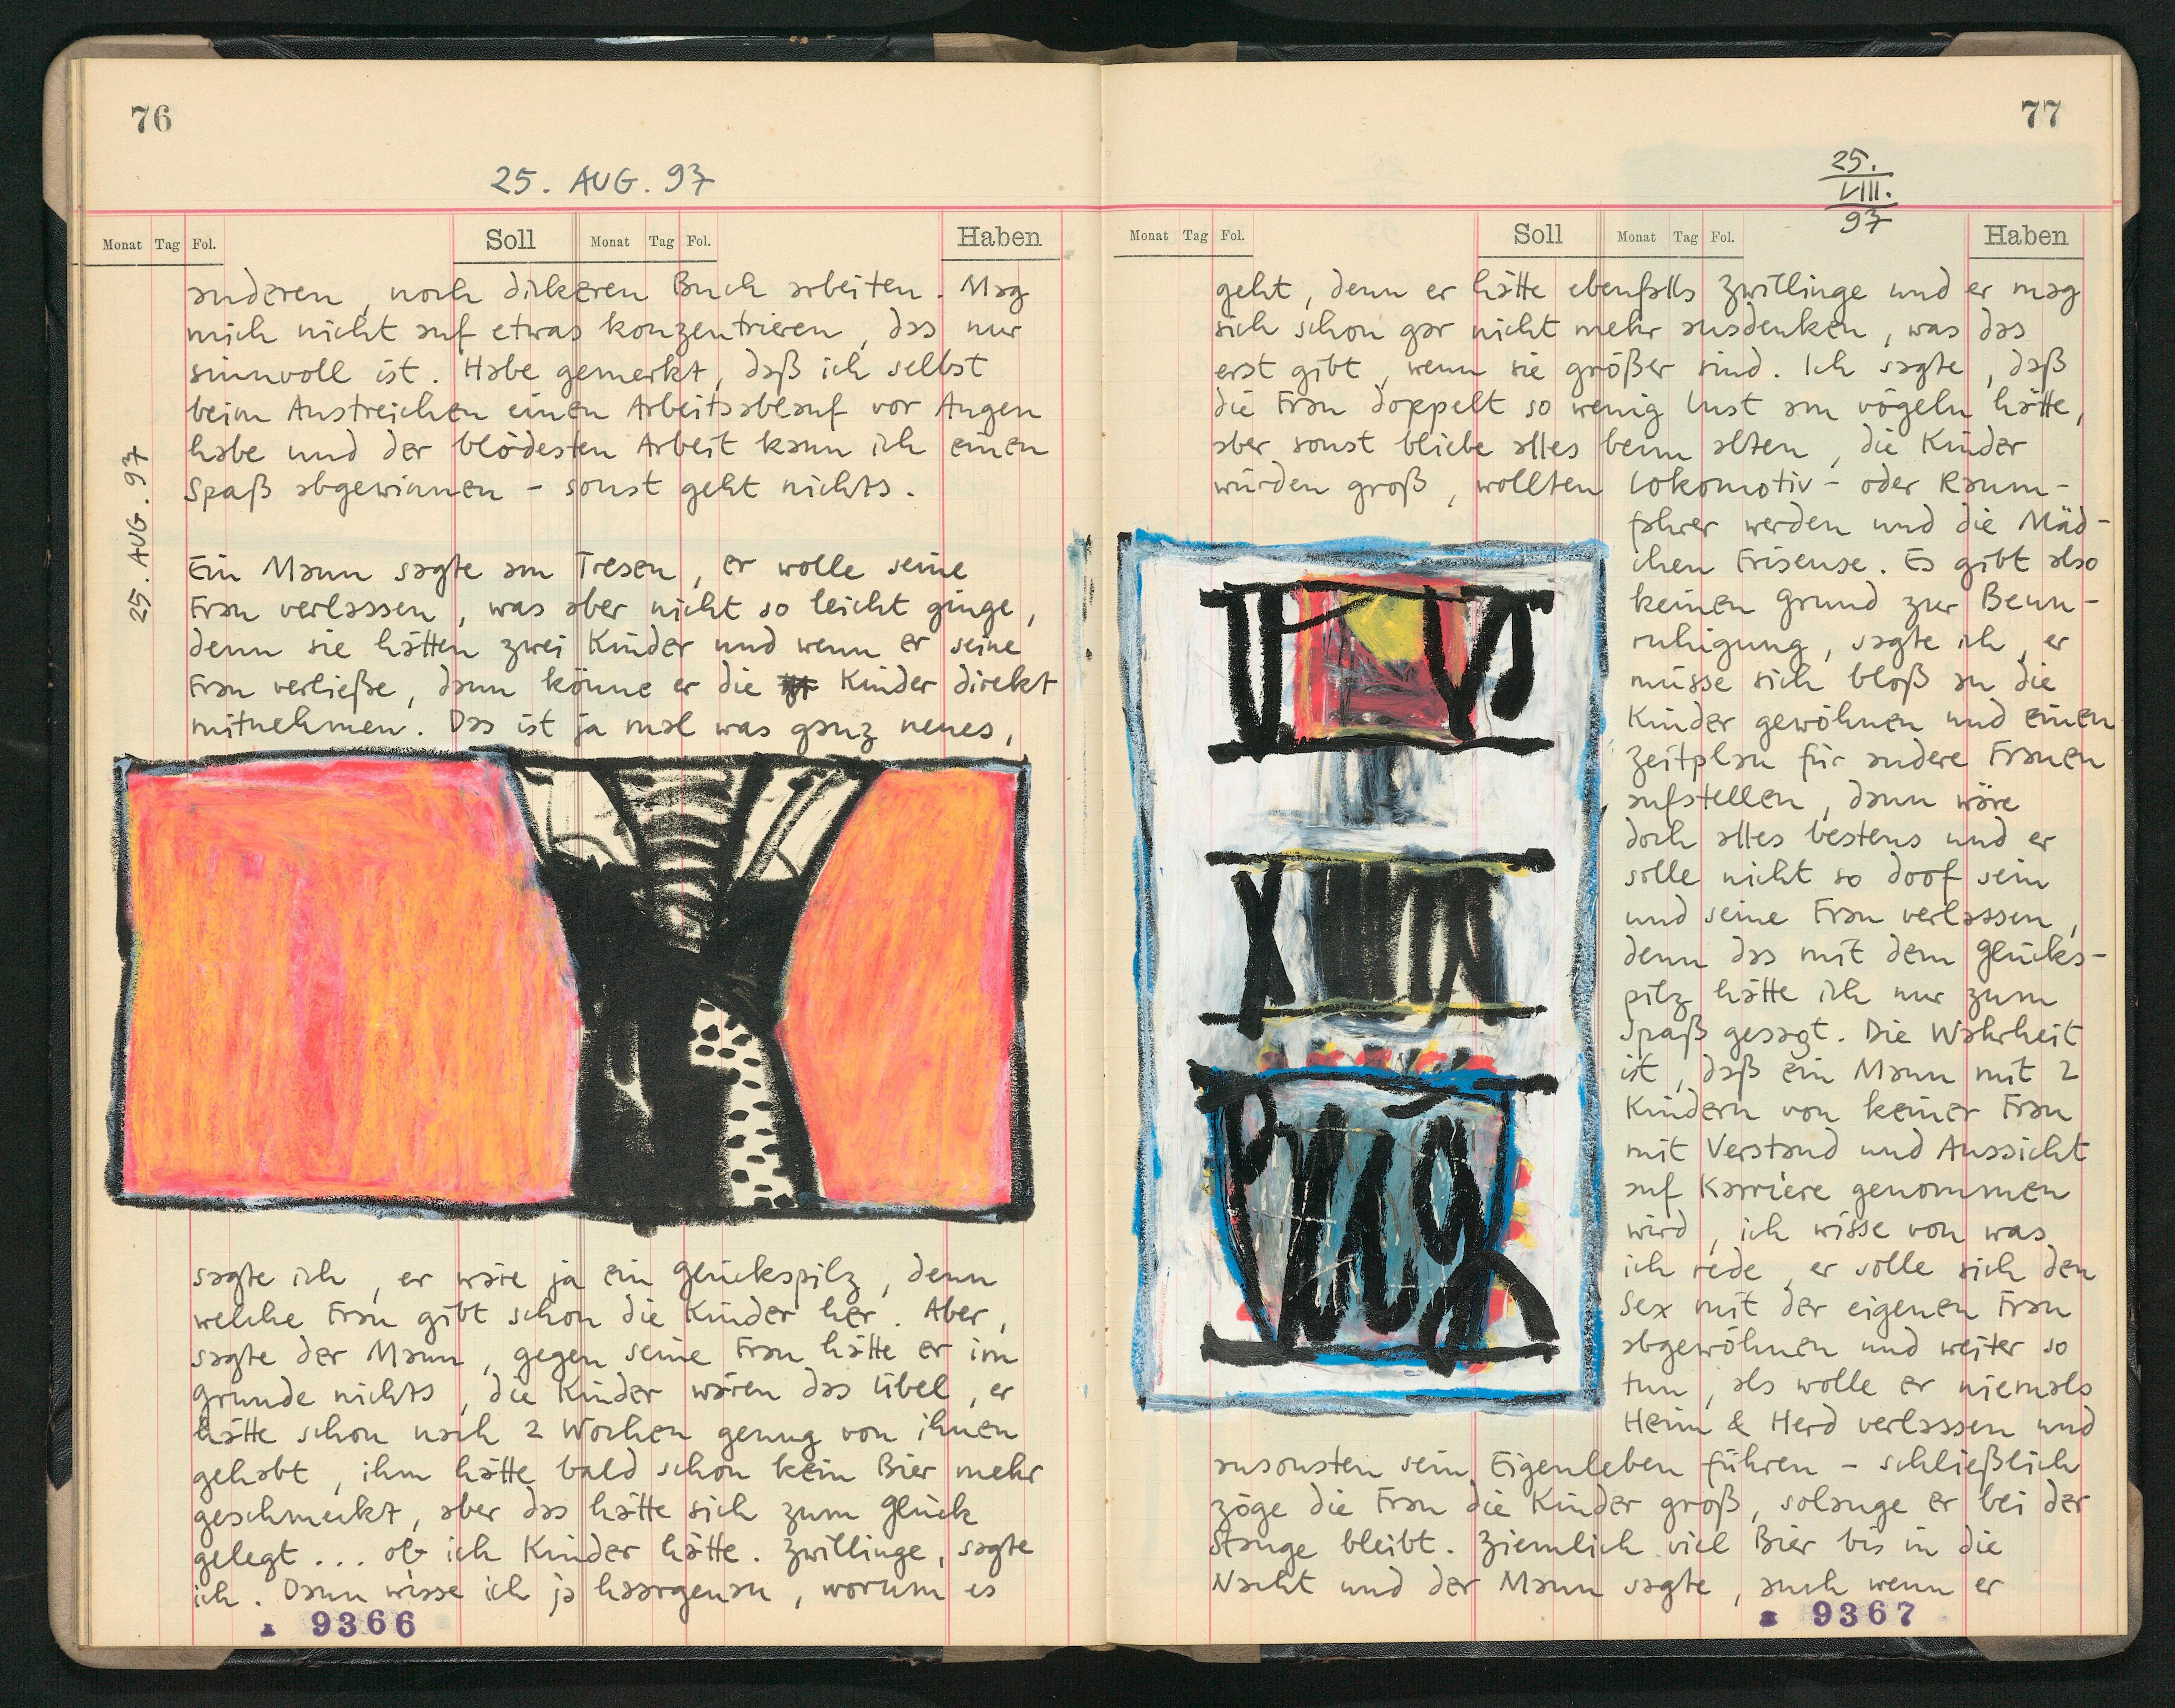 76
25. AUG. 97
Monat Tag Fol. Soll Monat Tag Fol. Haben
25. AUG. 97
anderen, noch dickeren Buch arbeiten. Mag
mich nicht auf etwas konzentrieren, das nur
sinnvoll ist. Habe gemerkt, daß ich selbst
beim Anstreichen einen Arbeitsablauf vor Augen
habe und der blödesten Arbeit kann ich einen
Spaß abgewinnen - sonst geht nichts.
Ein Mann sagte am Tresen, er wolle seine
Frau verlassen, was aber nicht so leicht ginge,
denn sie hätten zwei Kinder und wenn er seine
Frau verließe, dann könne er die Kinder direkt
mitnehmen. Das ist ja mal was ganz neues,
sagte ich, er wäre ja ein Glückspilz, denn
welche Frau gibt schon die Kinder her. Aber,
sagte der Mann, gegen seine Frau hätte er im
Grunde nichts, die Kinder wären das Übel, er
hätte schon nach 2 Wochen genug von ihnen
gehabt, ihm hätte bald schon kein Bier mehr
geschmeckt, aber das hätte sich zum Glück
gelegt... ob ich Kinder hätte. Zwillinge, sagte
ich. Dann wisse ich ja haargenau, worum es
9366
77
25.
VIII.
97
Monat Tag Fol. Soll Monat Tag Fol. Haben
geht, denn er hätte ebenfalls Zwillinge und er mag
sich schon gar nicht mehr ausdenken, was das
erst gibt, wenn sie größer sind. Ich sagte, daß
die Frau doppelt so wenig Lust am vögeln hätte,
aber sonst bliebe alles beim alten, die Kinder
würden groß, wollten Lokomotiv- oder Raum-
fahrer werden und die Mäd-
chen Friseuse. Es gibt also
keinen Grund zur Beun-
ruhigung, sagte ich, er
müsse sich bloß an die
Kinder gewöhnen und einen
Zeitplan für andere Frauen
aufstellen, dann wäre
doch alles bestens und er
solle nicht so doof sein
und seine Frau verlassen,
denn das mit dem Glücks-
pilz hätte ich nur zum
Spaß gesagt. Die Wahrheit
ist, daß ein Mann mit 2
Kindern von keiner Frau
mit Verstand und Aussicht
auf Karriere genommen
wird, ich wisse von was
ich rede, er solle sich den
Sex mit der eigenen Frau
abgewöhnen und weiter so
tun, als wolle er niemals
Heim & Herd verlassen und
ansonsten sein Eigenleben führen - schließlich
zöge die Frau die Kinder groß, solange er bei der
Stange bleibt. Ziemlich viel Bier bis in die
Nacht und der Mann sagte, auch wenn er
9367